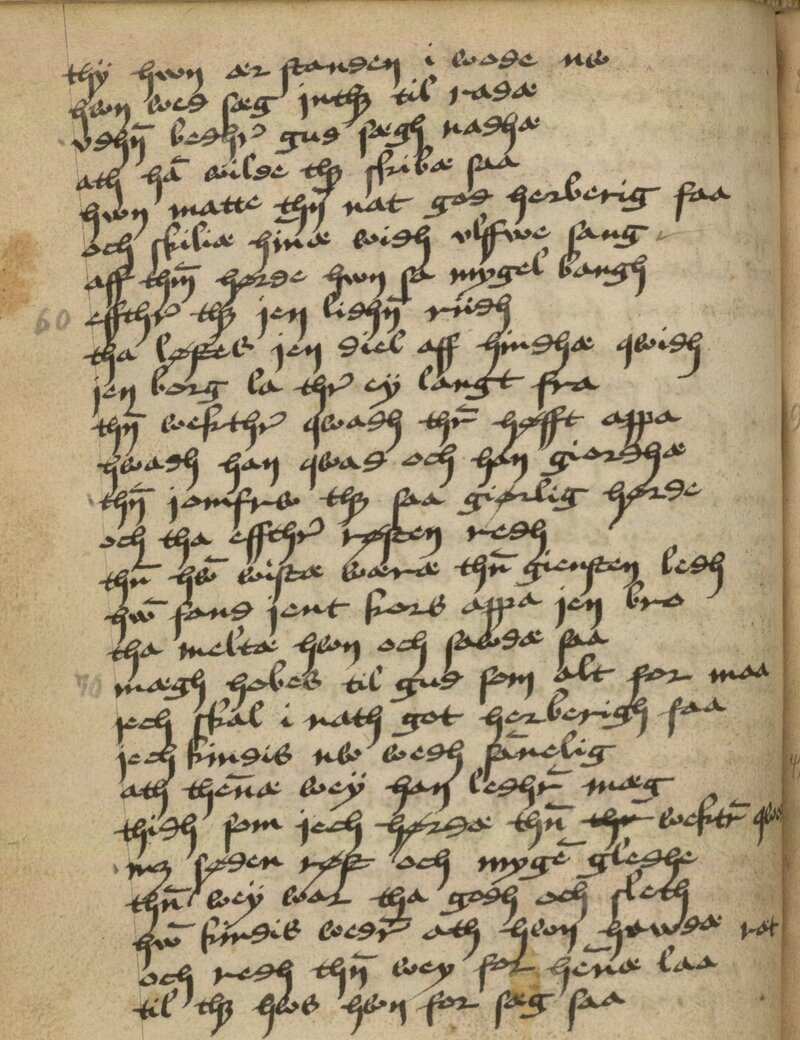 thÿ hwn ær standen i wode nw
hwn wed sæg inthꝫ til radæ
vdhn̄ bedhr̛ gud sægh nadhæ
ath hā wilde thꝫ skibæ saa
hwn matte thn̄ nat god herberig faa
och skiliæ hinæ widh vlffwe sang
aff thm̄ hørde hwn sa mygel bangh
60 effthr̛ thꝫ jen lidhn̄ riidh
tha løftes jen diel aff hindhæ qwidh
jen borg la thr̛ ey langt fra
thn̄ wekthr̛ qwadh thr̄ høfft appa
hwadh han qwad och han giordhæ
thn̄ jomfrw thꝫ saa giørlig hørde
och tha effthr̛ røsten redh
thn̄ hw̄ wistæ wæræ thn̄ giensten ledh
hw̄ fand jent kors appa jen bro
tha meltæ hwn och sawdæ saa
70 mægh hobes til gud som alt for maa
jech skal i nath got herberigh faa
jech kindis nw wedh sānelig
ath then̄æ wey han ledhr̄ mæg
thidh som jech hørdæ thn̄ thr wektr̄
mꝫ søden røst och mygē gledhe
thn̄ wey war tha godh och sleth
hw̄ kindis wedr̄ ath hwn hawdæ ræt
och redh thn̄ wey for hen̄æ laa
til thꝫ hws hwn for sæg saa